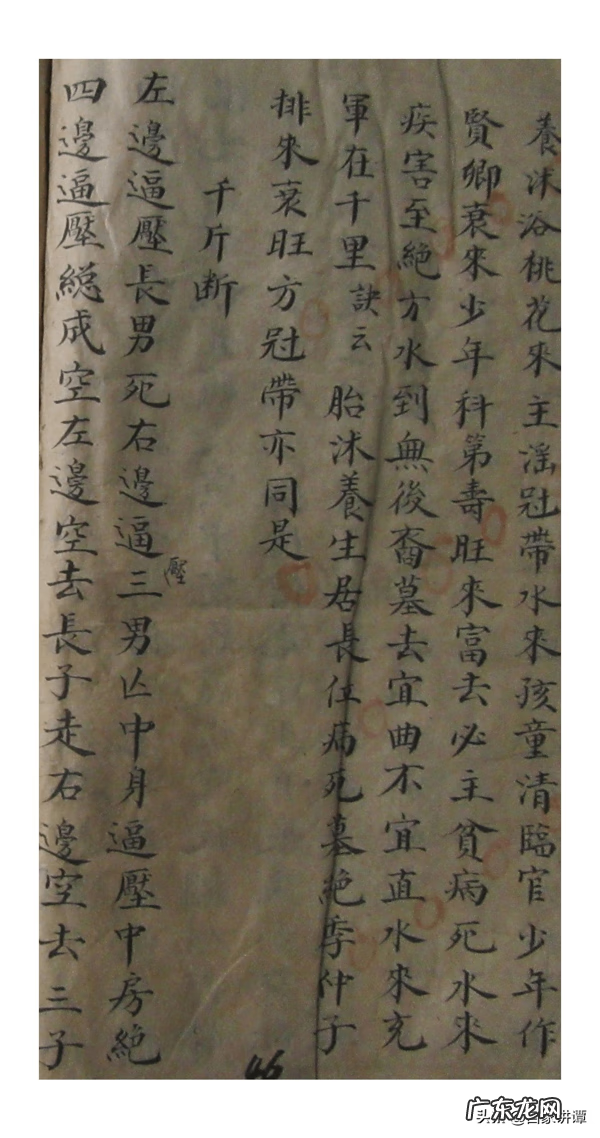 養沐浴桃花來主滛冠帶水來孩童清臨官少年作
賢卿衰來少年科第壽旺來富去必主貧病死水來
疾害至絕方水到無後裔墓去宜曲不宜直水來充
軍在千里訣云胎沐養生居長位病死墓絕季仲子
排來衰旺方冠帶亦同是
千斤断
左邊逼壓長男死右邊逼壓三男亾中身逼壓中房絕
四邊逼壓総成空左邊空去長子走右邊空去三子
46
广东龙网